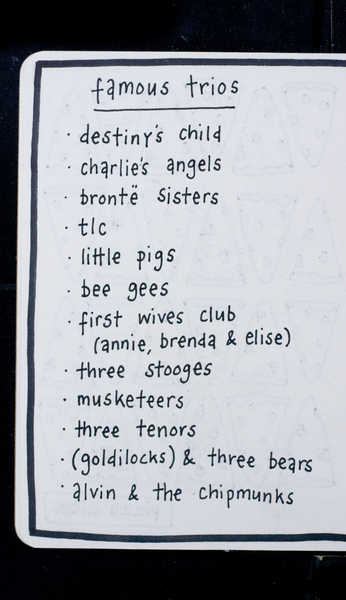 famous trios
· destiny's child
· charlie's angels
· brontë sisters
· tlc
· little pigs
· bee gees
· first wives club
(annie, brenda & elise)
· three stooges
· musketeers
· three tenors
· (goldilocks) & three bears
· alvin & the chipmunks